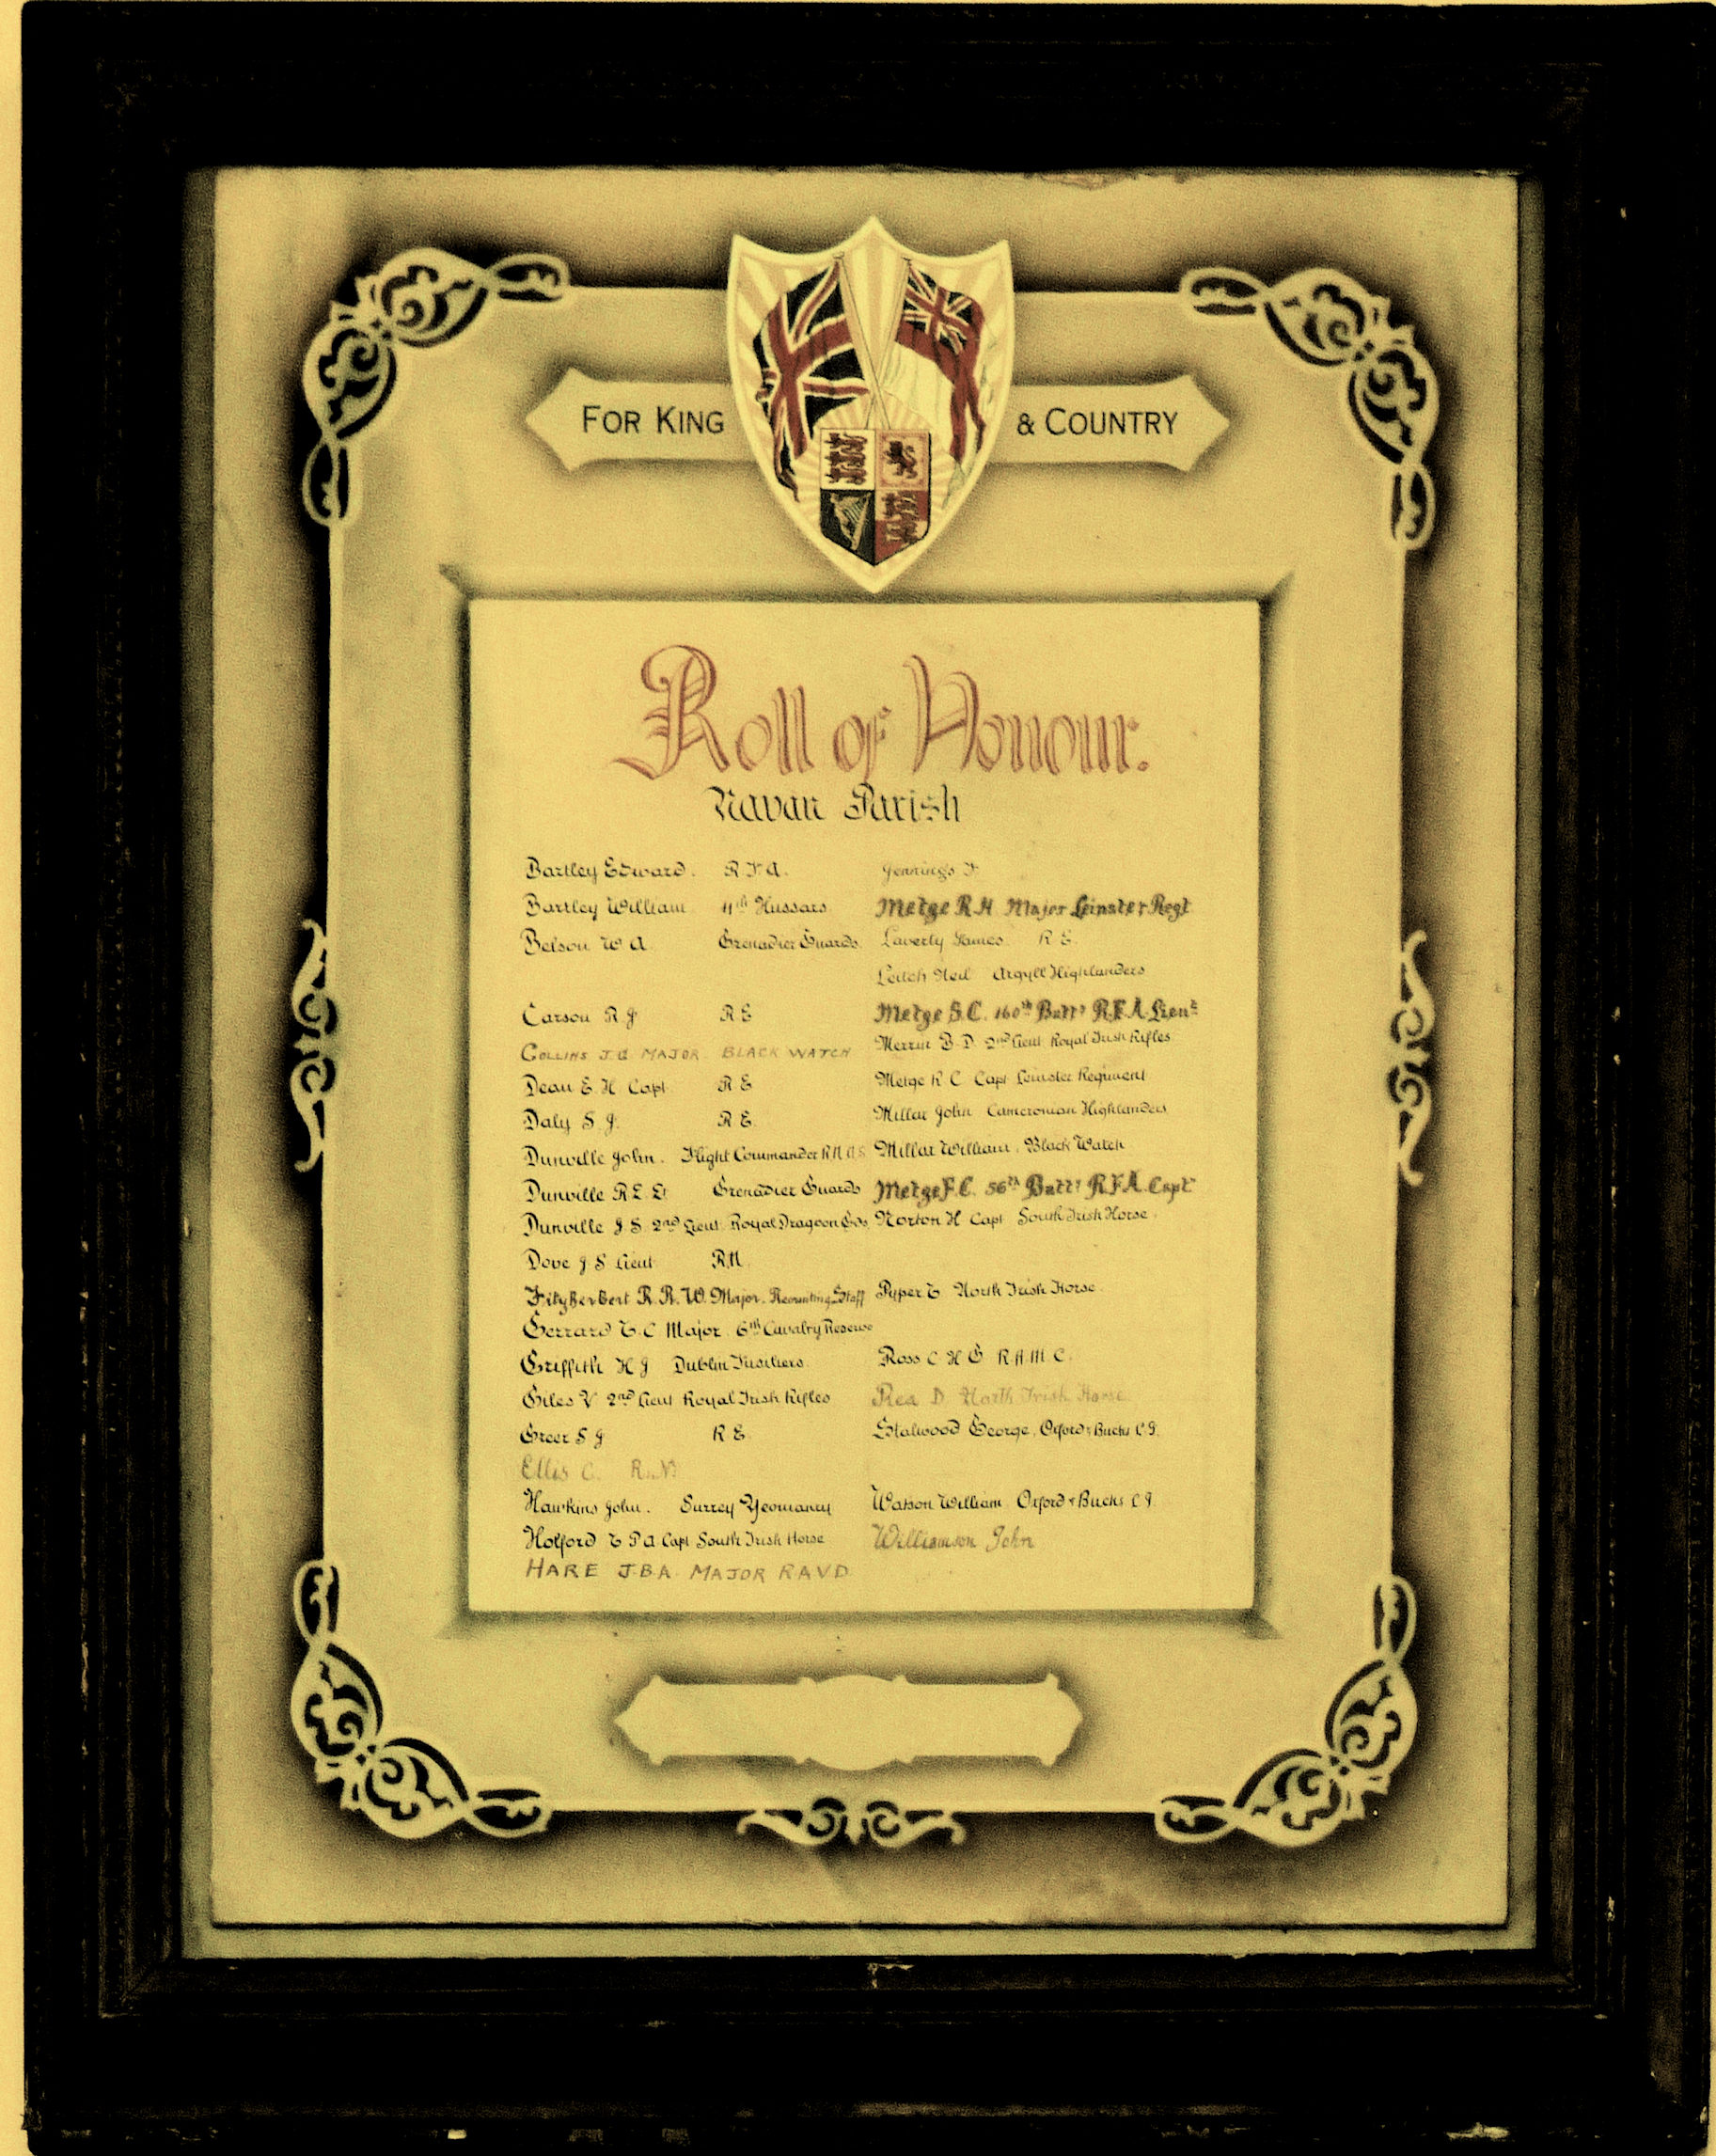 FOR KING & COUNTRY
Roll of Honour.
Navan Parish
Bartley Edward. R.F.A.
Bartley William 11th Hussars
Belson W A Grenadier Guards
Carson R J R E
COLLINS J.A MAJOR BLACK WATCH
Dean E. H Capt R E
Daly S. J. R.E.
Dunville John. Flight Commander R N A S
Dunville R.E. L Grenadier Guards
Dunville J S 2nd Lieut Royal Dragoon Gds
Dove J S Lieut R.N.
Fitzherbert R.R.W. Major. Recruiting Staff
Gerrard T.C Major 6th Cavalry Reserve
Griffith H J Dublin Fusiliers
Giles V 2nd Lieut Royal Irish Rifles
Greer S J R E.
Ellis C. R.N.
Hawkins John. Surrey Yeomanry
Holford T P A Capt South Irish Horse
HARE J.B.A. MAJOR R A V D
Jennings F
Metge R.H. Major Leinster Regt
Laverty James. R E.
Leitch Neil Argyll Highlanders
Metge S.C. 160th Batty R.F.A. Lieut
Merrin B. D. 2nd Lieut Royal Irish Rifles
Metge R C Capt Leinster Regiment
Millar John Cameronian Highlanders
Millar William. Black Watch
Metge F.C. 56th Batty R.F.A. Capt
Norton H Capt South Irish Horse.
Pyper T North Irish Horse.
Ross C H G R.A.M.C.
Rea D North Irish Horse
Stalwood George, Oxford & Bucks L I.
Watson William. Oxford & Bucks L I
Williamson John